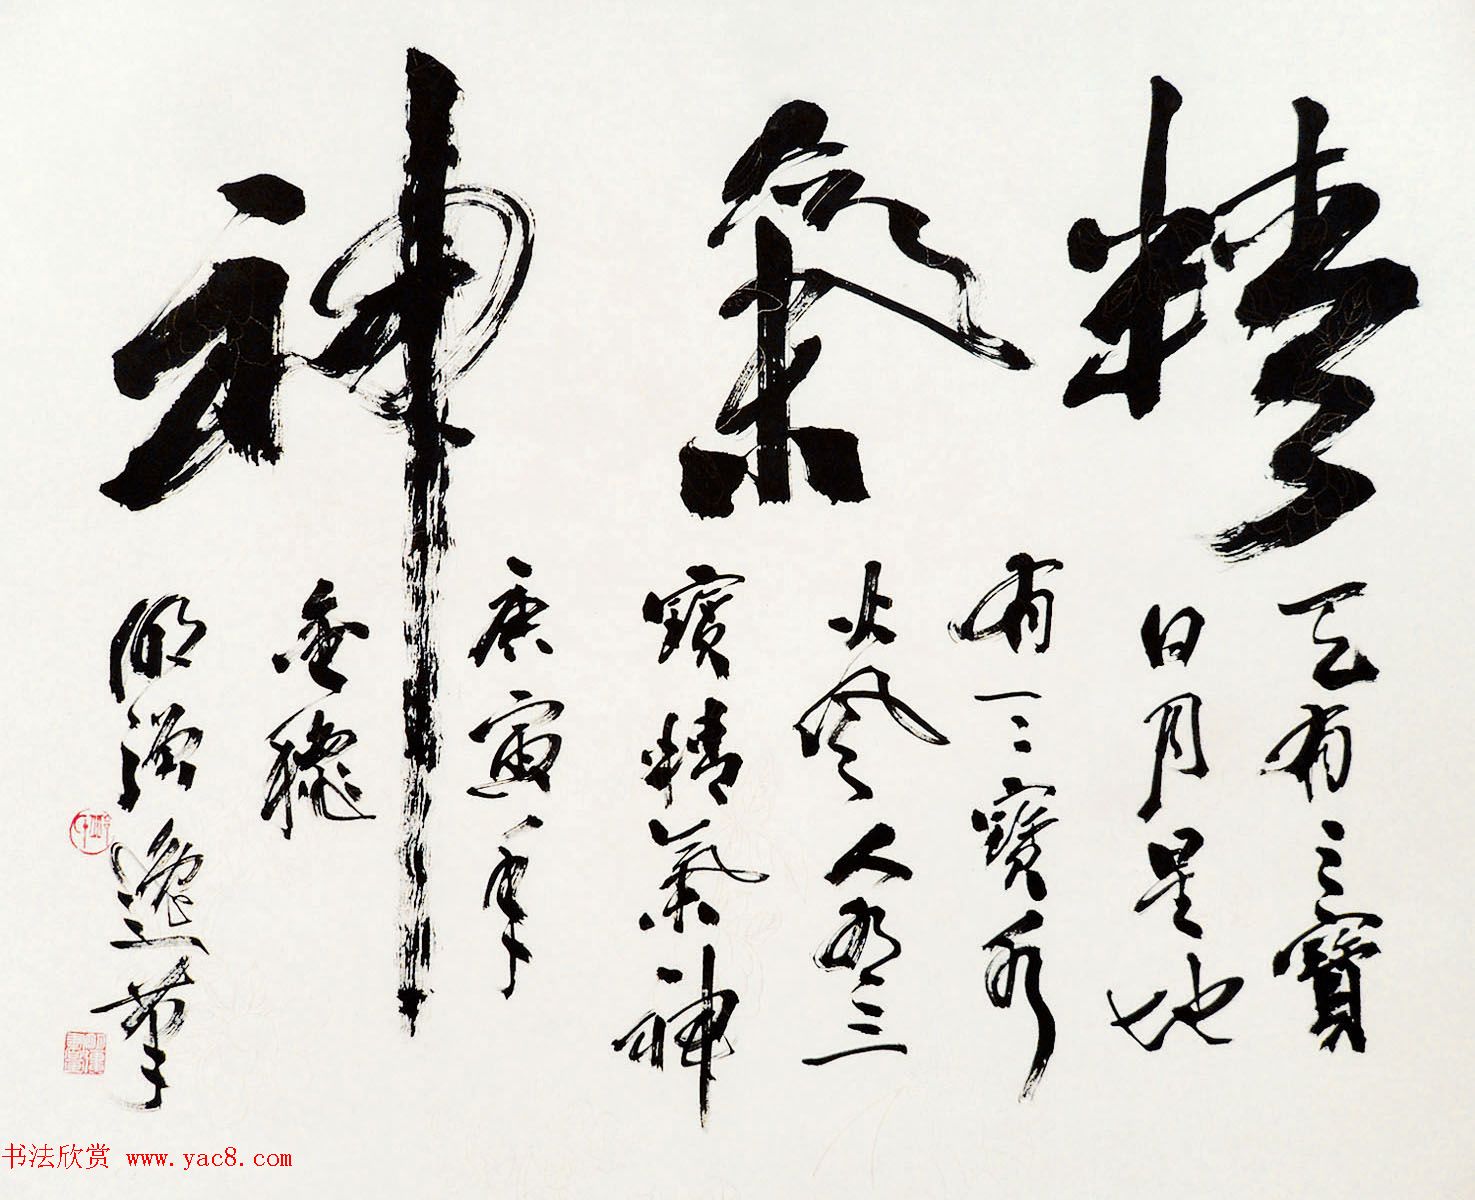 精氣神
天有三寶
日月星地
有三寶水
火風人有三
寶精氣神
庚寅年
金穐
明強逸筆
书法欣赏 www.yac8.com